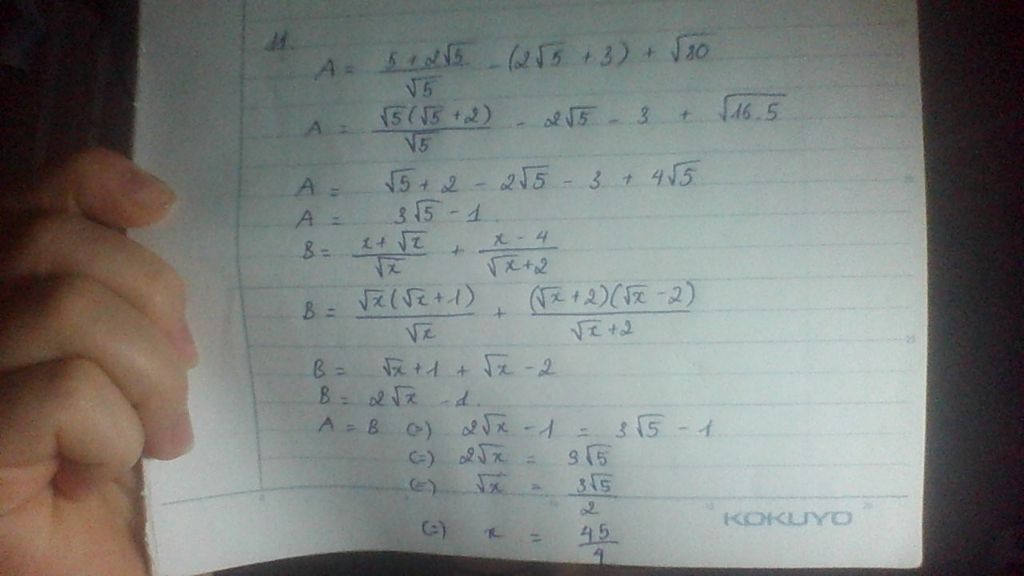 11.
A = \frac{5 + 2\sqrt{5}}{\sqrt{5}} - (2\sqrt{5} + 3) + \sqrt{80}
A = \frac{\sqrt{5}(\sqrt{5} + 2)}{\sqrt{5}} - 2\sqrt{5} - 3 + \sqrt{16.5}
A = \sqrt{5} + 2 - 2\sqrt{5} - 3 + 4\sqrt{5}
A = 3\sqrt{5} - 1
B = \frac{x + \sqrt{x}}{\sqrt{x}} + \frac{x - 4}{\sqrt{x} + 2}
B = \frac{\sqrt{x}(\sqrt{x} + 1)}{\sqrt{x}} + \frac{(\sqrt{x} + 2)(\sqrt{x} - 2)}{\sqrt{x} + 2}
B = \sqrt{x} + 1 + \sqrt{x} - 2
B = 2\sqrt{x} - 1.
A = B (=) 2\sqrt{x} - 1 = 3\sqrt{5} - 1
(=) 2\sqrt{x} = 3\sqrt{5}
(=) \sqrt{x} = \frac{3\sqrt{5}}{2}
(=) x = \frac{45}{4}
KOKUYO